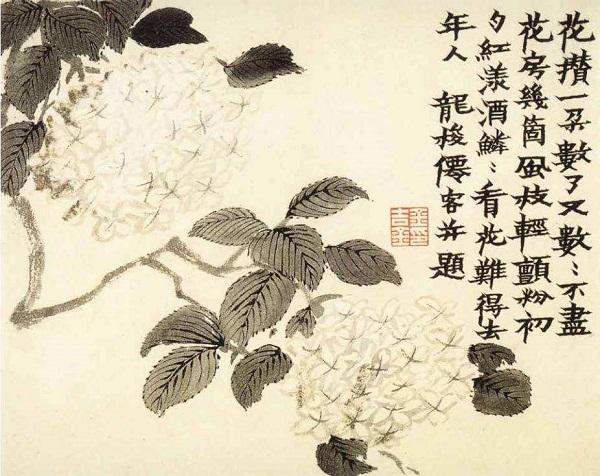 花攢一朶數了又數〻不盡
花房幾箇風枝輕顫粉初
勻紅漾酒鱗〻看花難得去
年人 龍梭僊客并題